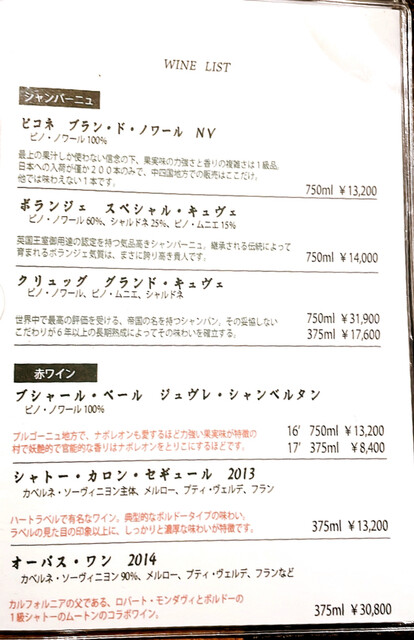 WINE LIST
シャンパーニュ
ピコネ ブラン・ド・ノワール NV
ピノ・ノワール 100%
最上の果汁しか使わない信念の下、果実味の力強さと香りの複雑さは1級品。
日本への入荷が僅か200本のみで、中四国地方での販売はここだけ。
他では味わえない1本です。
750ml ¥13,200
ボランジェ スペシャル・キュヴェ
ピノ・ノワール 60%、シャルドネ 25%、ピノ・ムニエ 15%
英国王室御用達の認定を持つ気品高きシャンパーニュ。継承される伝統によって
育まれるボランジェ気質は、まさに誇り高き貴人です。
750ml ¥14,000
クリュッグ グランド・キュヴェ
ピノ・ノワール、ピノ・ムニエ、シャルドネ
世界中で最高の評価を受ける、帝国の名を持つシャンパン。その妥協しない
750ml ¥31,900
こだわりが6年以上の長期熟成によってその味わいを確立する。
375ml ¥17,600
赤ワイン
ブシャール・ペール ジュヴレ・シャンベルタン
ピノ・ノワール 100%
ブルゴーニュ地方で、ナポレオンも愛するほど力強い果実味が特徴の
16’ 750ml ¥13,200
村で妖艶的で官能的な香りはナポレオンをとりこにするほどです。
17’ 375ml ¥8,400
シャトー・カロン・セギュール 2013
カベルネ・ソーヴィニヨン主体、メルロー、プティ・ヴェルデ、フラン
ハートラベルで有名なワイン。典型的なボルドータイプの味わい。
ラベルの見た目の印象以上に、しっかりと濃厚な味わいが特徴です。
375ml ¥13,200
オーパス・ワン 2014
カベルネ・ソーヴィニヨン 90%、メルロー、プティ・ヴェルデ、フランなど
カルフォルニアの父である、ロバート・モンダヴィとボルドーの
1級シャトーのムートンのコラボワイン。
375ml ¥30,800